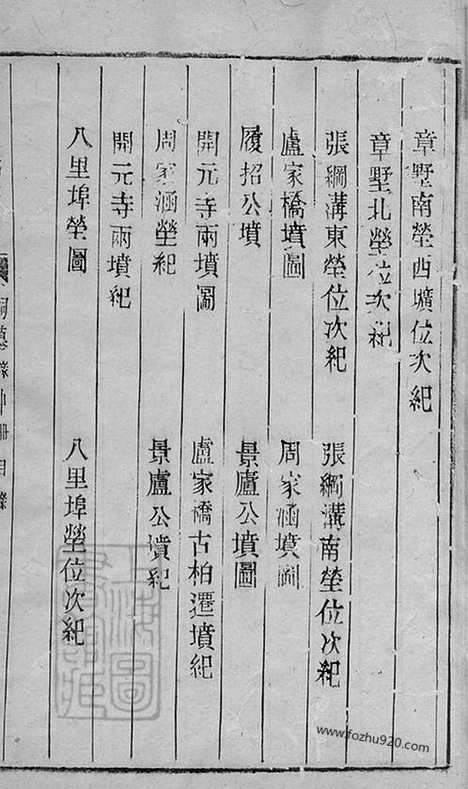 章墅南塋西壙位次紀
章墅北塋位次紀
張綱溝東塋位次紀
張綱溝南塋位次紀
盧家橋墳圖
周家涵墳圖
履招公墳
景廬公墳圖
開元寺兩墳圖
盧家橋古柏遷墳紀
周家涵塋紀
景廬公墳紀
開元寺兩墳紀
八里埠塋圖
八里埠塋位次紀
目錄
www.fozhu920.com